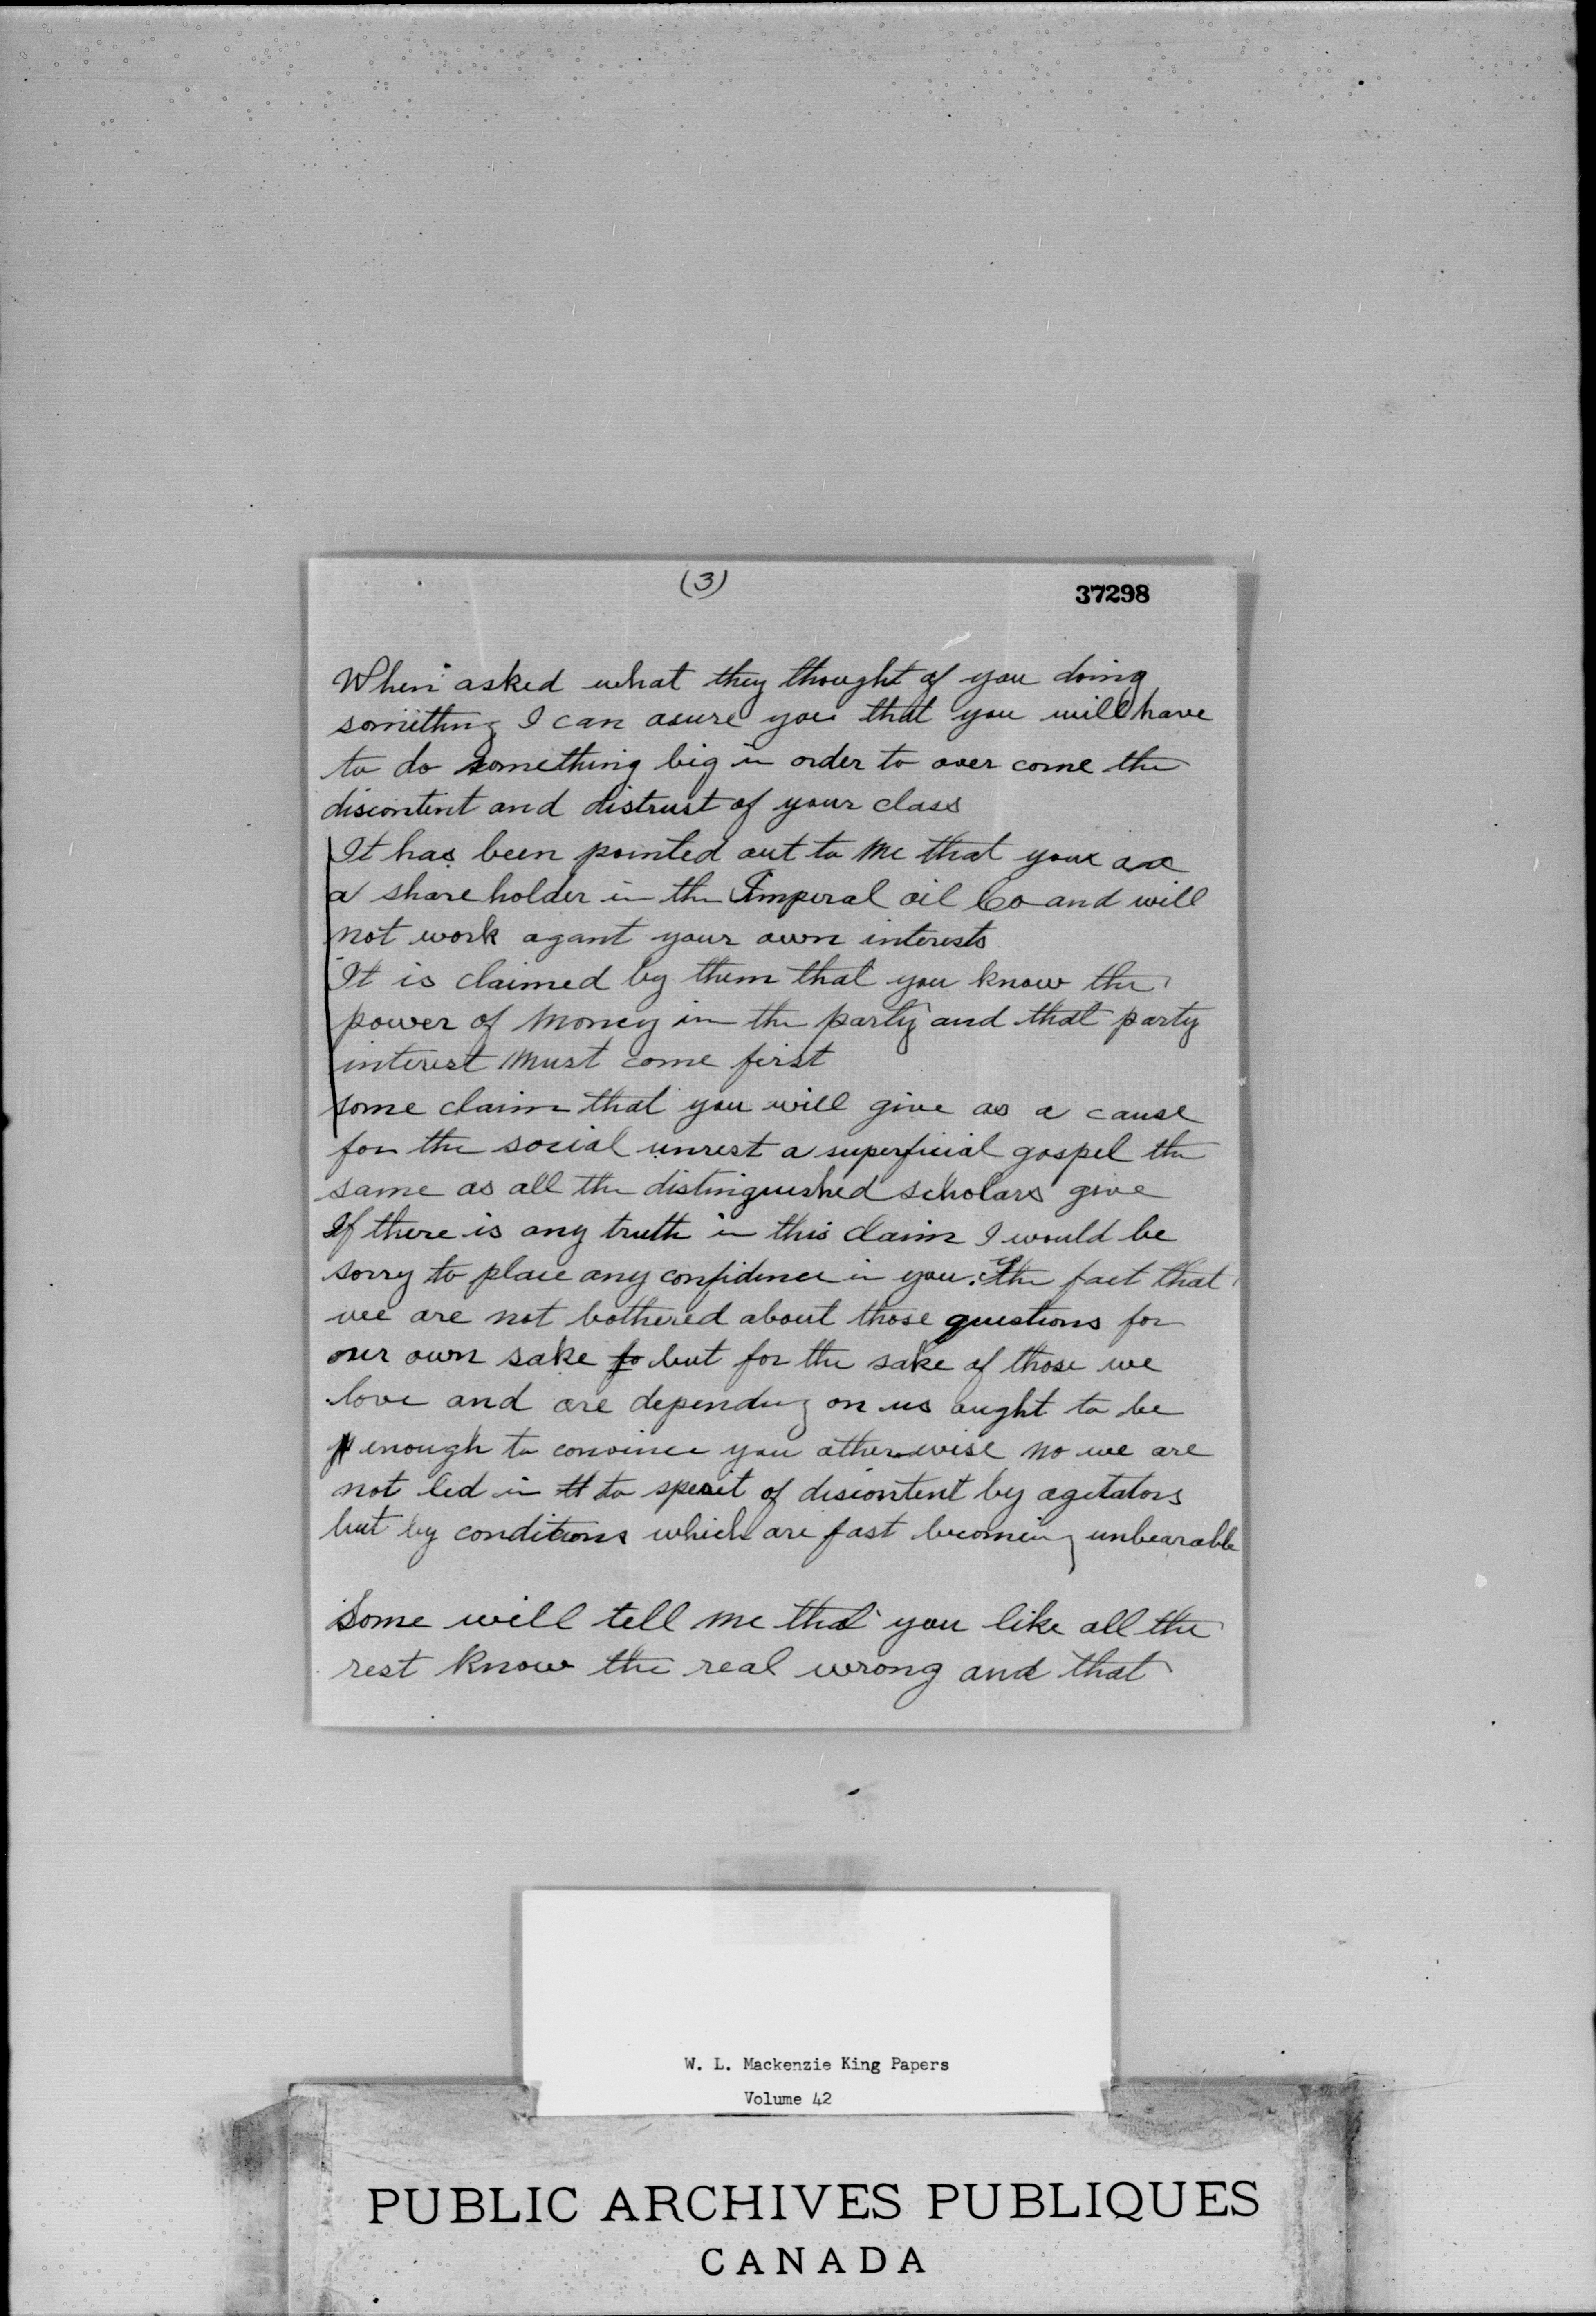 (3)
37298
When asked what they thought of you doing
something I can asure you that you will have
to do something big in order to over come the
discontent and distrust of your class
It has been pointed out to me that your are
a share holder in the Imperal oil Co and will
not work agant your own interests
It is claimed by them that you know the
power of money in the party and that party
interest must come first
some claim that you will give as a cause
for the social unrest a superficial gospel the
same as all the distinguished scholars give
If there is any truth in this claim I would be
sorry to place any confidence in you. The fact that
we are not bothered about those questions for
our own sake fo but for the sake of those we
love and are depending on us aught to be
enough to convince you otherwise no we are
not led in tt to spearit of discontent by agetators
but by conditions which are fast becoming unbearable
Some will tell me that you like all the
rest know the real wrong and that
W. L. Mackenzie King Papers
Volume 42
PUBLIC ARCHIVES PUBLIQUES
CANADA